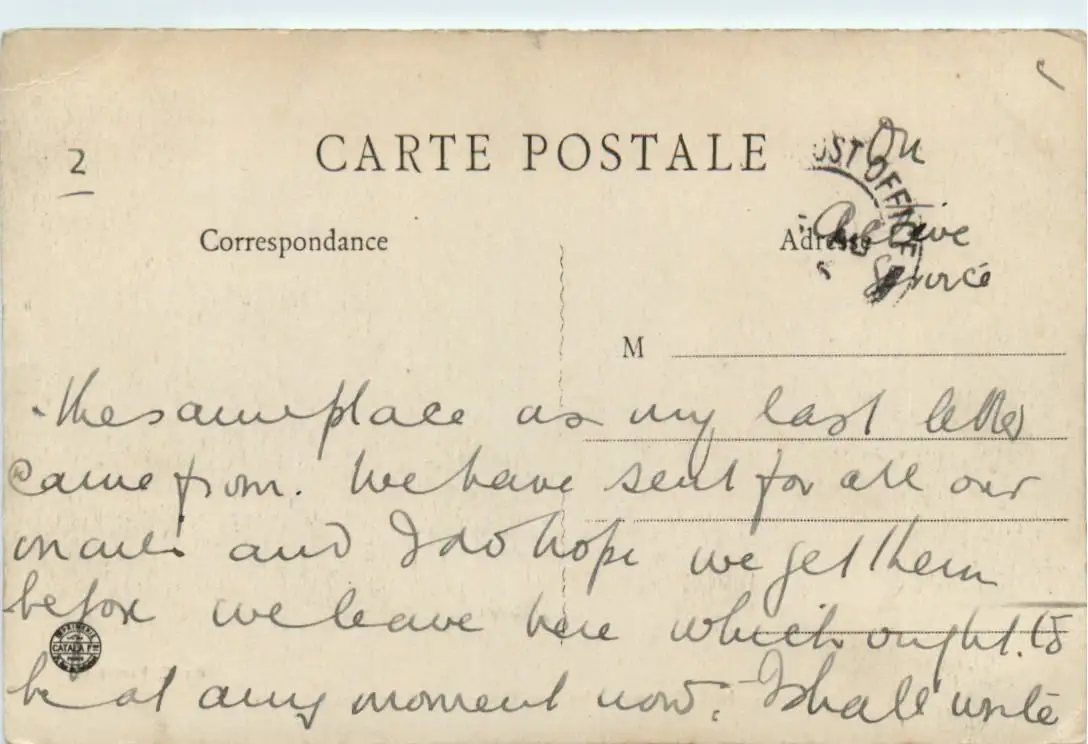 2
CARTE POSTALE
On
POST OFFICE
Correspondance
Adresse
Active
Service
M
the same place as my last letter
came from. We have sent for all our
mails and I do hope we get them
before we leave here which ought to
be at any moment now. I shall write
IMPRIMERIE
CATALA Fres